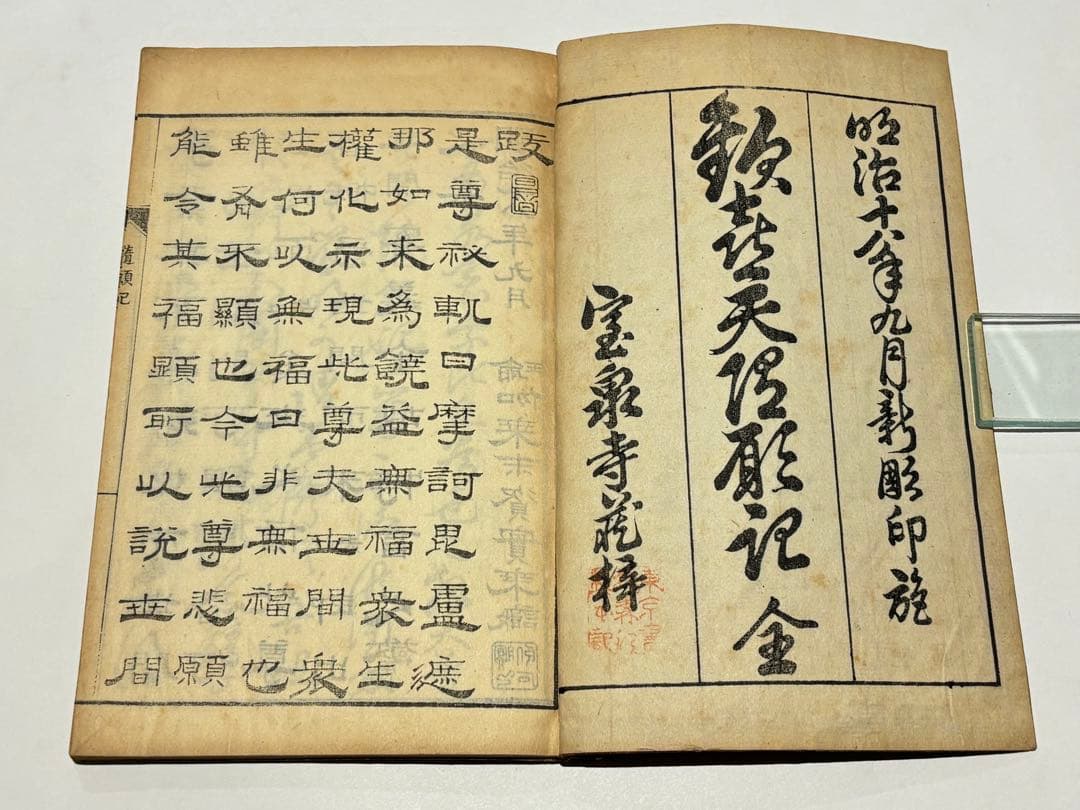 明治十八年九月新彫印施
歡喜天隨願記 全
宝泉寺蔵梓
跋
是尊祕軌曰摩訶毘盧遮
那如来為饒益無福衆生
權化示現此尊夫世間衆
生何以無福曰非無福也
雖有不顯也今此尊悲願
能令其福顕所以説世間
隨願記